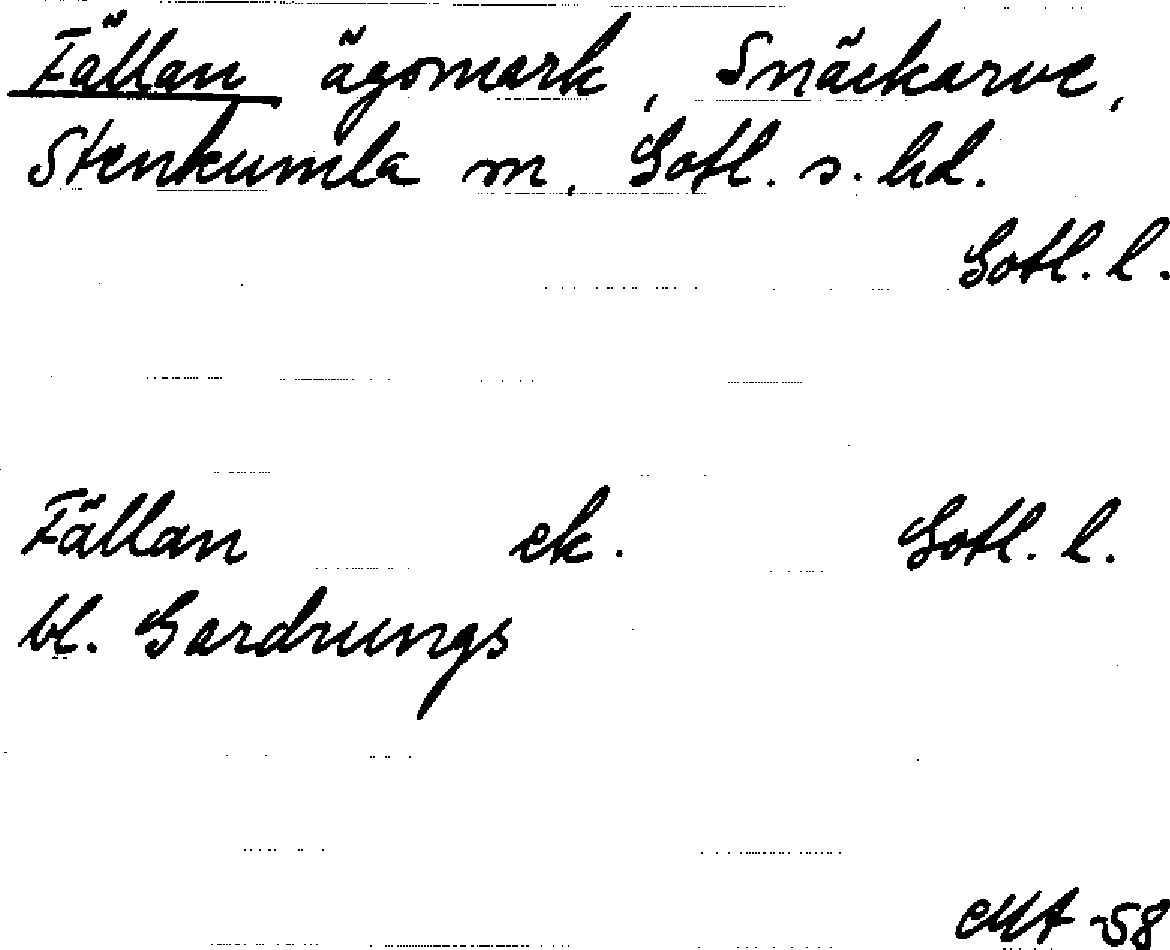 Fällan ägomark, Snäckarve,
Stenkumla sn, Gotl. s. hd.
Gotl. l.
Fällan ek. Gotl. l.
bl. Gardrungs
-58